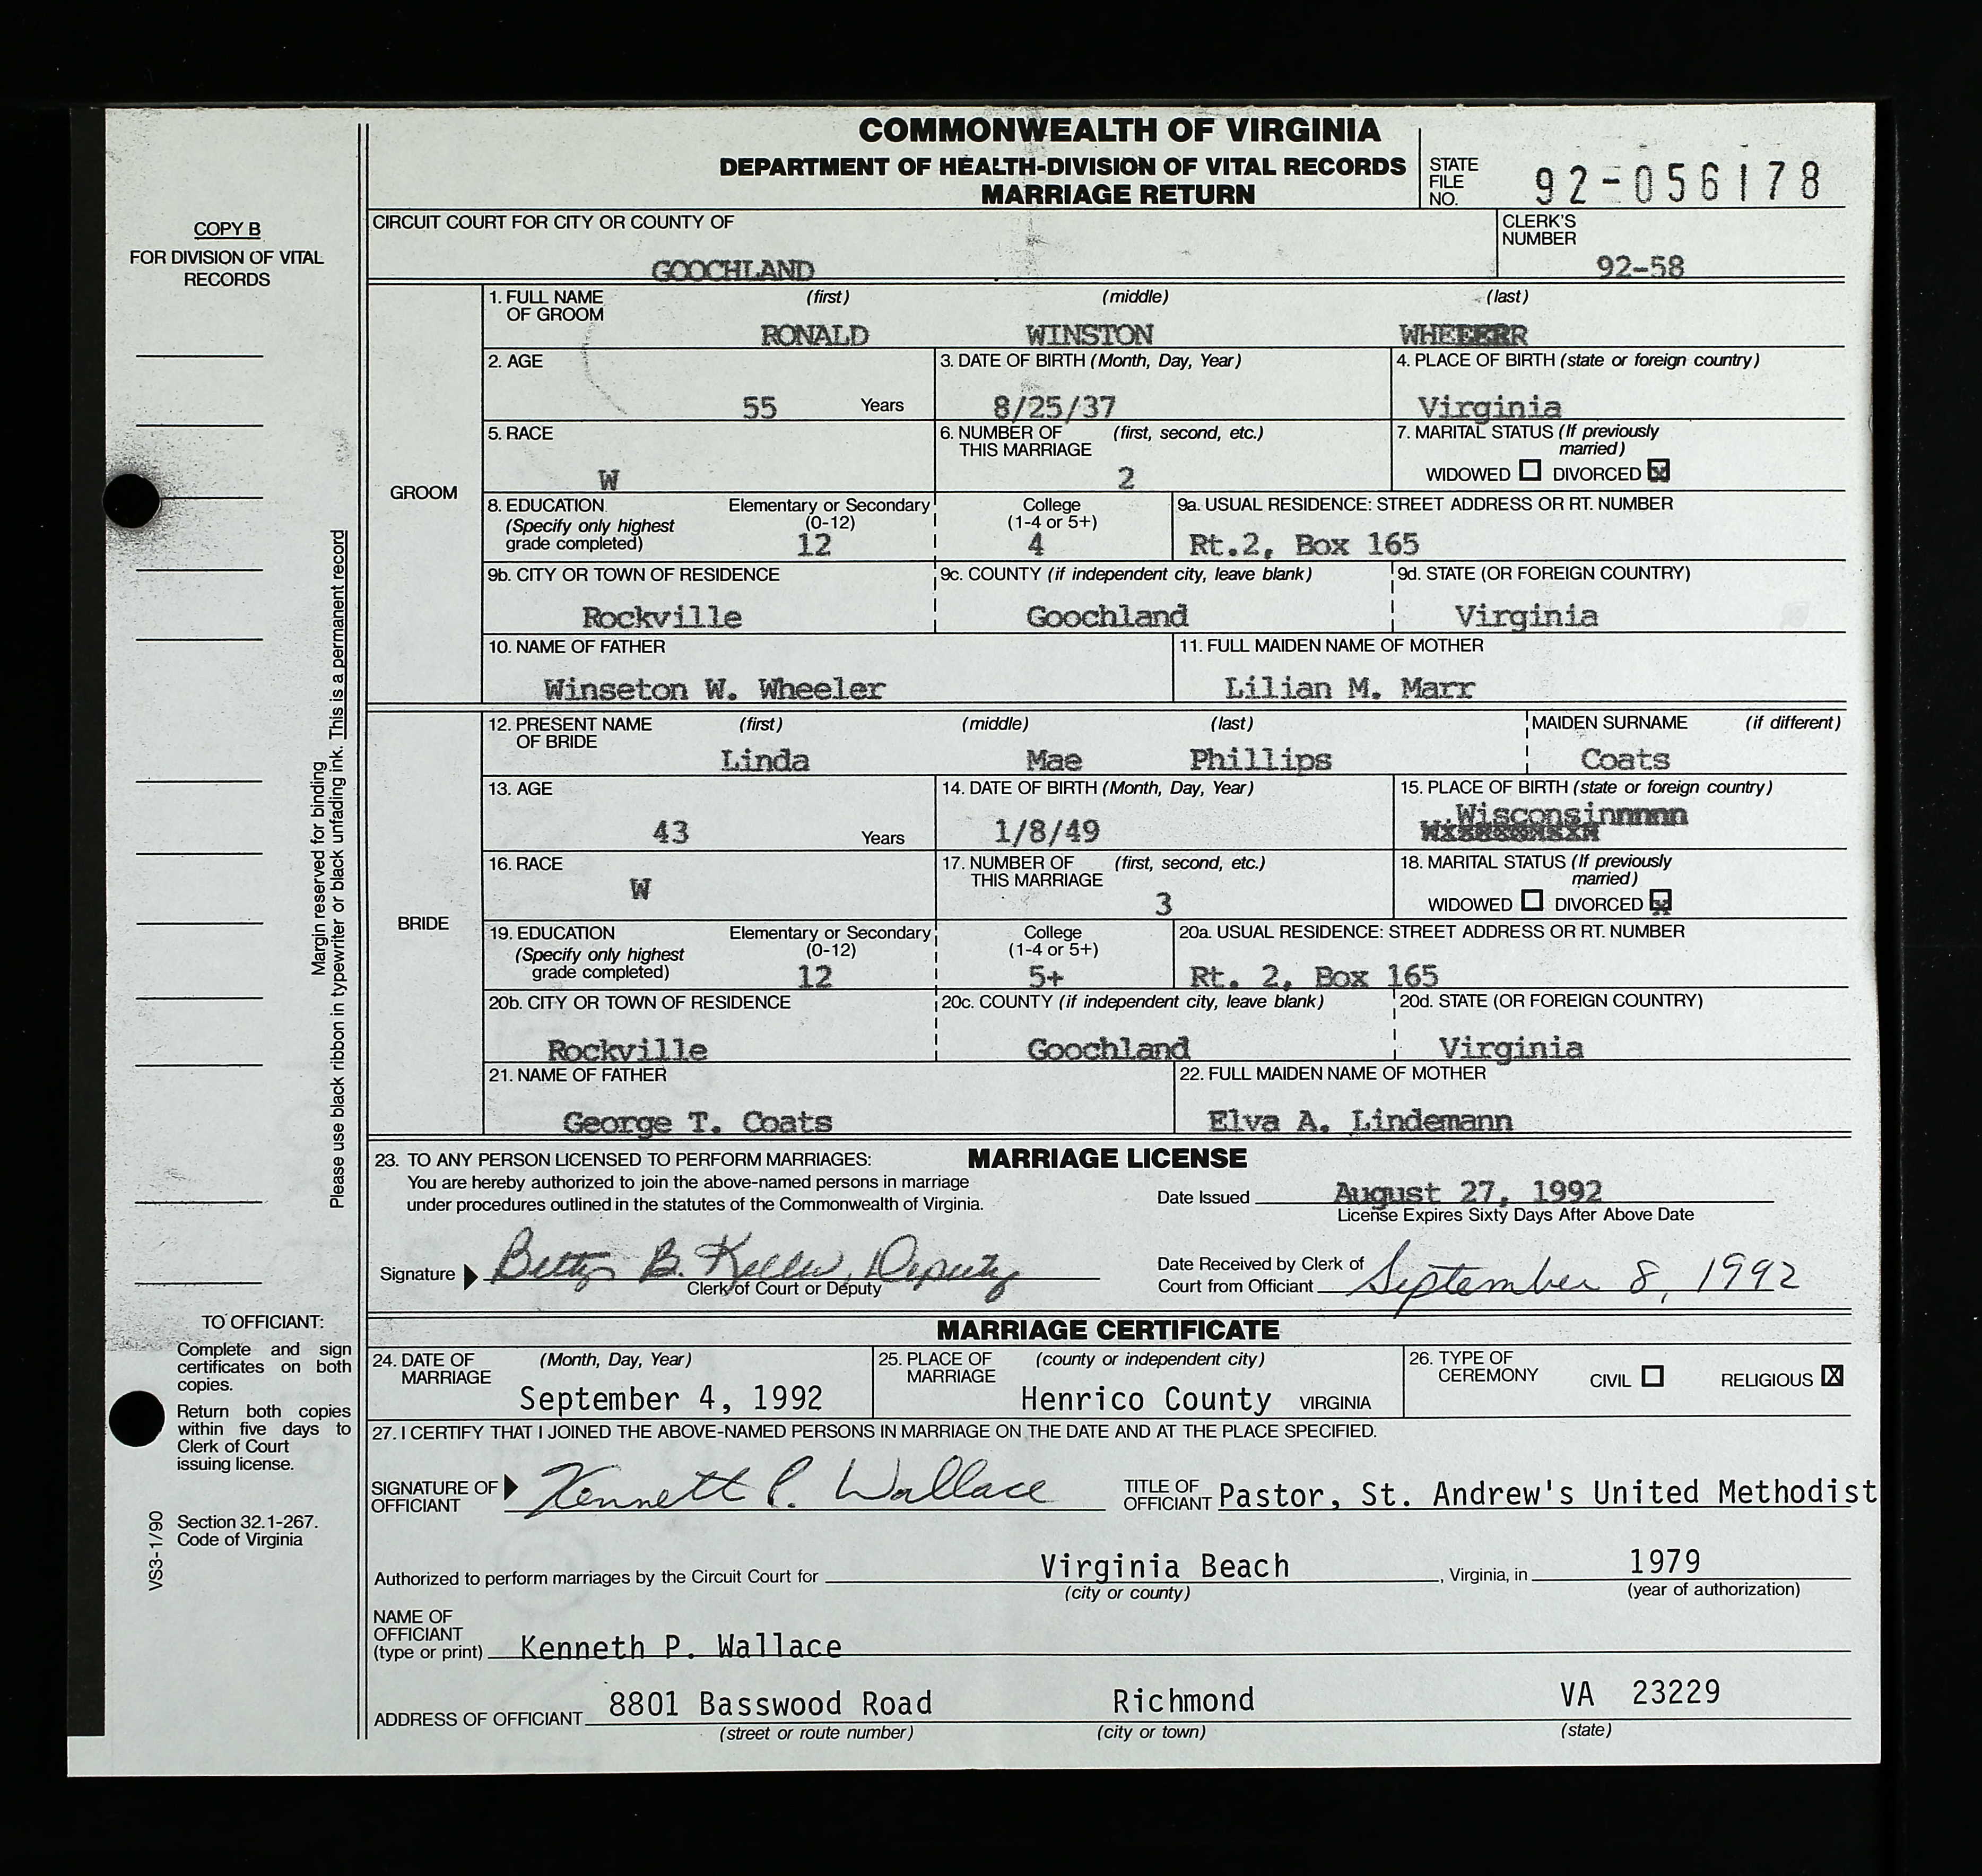 COMMONWEALTH OF VIRGINIA
DEPARTMENT OF HEALTH-DIVISION OF VITAL RECORDS
MARRIAGE RETURN
STATE FILE NO. 92-056178
COPY B
FOR DIVISION OF VITAL RECORDS
CIRCUIT COURT FOR CITY OR COUNTY OF
GOOCHLAND
CLERK'S NUMBER
92-58
GROOM
1. FULL NAME OF GROOM (first) (middle) (last)
RONALD WINSTON
2. AGE
55 Years
3. DATE OF BIRTH (Month, Day, Year)
8/25/37
4. PLACE OF BIRTH (state or foreign country)
Virginia
5. RACE
W
6. NUMBER OF THIS MARRIAGE (first, second, etc.)
2
7. MARITAL STATUS (If previously married)
WIDOWED DIVORCED X
8. EDUCATION (Specify only highest grade completed)
Elementary or Secondary (0-12)
12
College (1-4 or 5+)
4
9a. USUAL RESIDENCE: STREET ADDRESS OR RT. NUMBER
Rt.2, Box 165
9b. CITY OR TOWN OF RESIDENCE
Rockville
9c. COUNTY (if independent city, leave blank)
Goochland
9d. STATE (OR FOREIGN COUNTRY)
Virginia
10. NAME OF FATHER
Winseton W. Wheeler
11. FULL MAIDEN NAME OF MOTHER
Lilian M. Marr
BRIDE
12. PRESENT NAME OF BRIDE (first) (middle) (last)
Linda Mae Phillips
MAIDEN SURNAME (if different)
Coats
13. AGE
43 Years
14. DATE OF BIRTH (Month, Day, Year)
1/8/49
15. PLACE OF BIRTH (state or foreign country)
Wisconsinnnnn
16. RACE
W
17. NUMBER OF THIS MARRIAGE (first, second, etc.)
3
18. MARITAL STATUS (If previously married)
WIDOWED DIVORCED X
19. EDUCATION (Specify only highest grade completed)
Elementary or Secondary (0-12)
12
College (1-4 or 5+)
5+
20a. USUAL RESIDENCE: STREET ADDRESS OR RT. NUMBER
Rt. 2, Box 165
20b. CITY OR TOWN OF RESIDENCE
Rockville
20c. COUNTY (if independent city, leave blank)
Goochland
20d. STATE (OR FOREIGN COUNTRY)
Virginia
21. NAME OF FATHER
George T. Coats
22. FULL MAIDEN NAME OF MOTHER
Elva A. Lindemann
Margin reserved for binding
Please use black ribbon in typewriter or black unfading ink. This is a permanent record
MARRIAGE LICENSE
23. TO ANY PERSON LICENSED TO PERFORM MARRIAGES:
You are hereby authorized to join the above-named persons in marriage
under procedures outlined in the statutes of the Commonwealth of Virginia.
Date Issued August 27, 1992
License Expires Sixty Days After Above Date
Signature Betty B. Keller, Deputy
Clerk of Court or Deputy
Date Received by Clerk of
Court from Officiant September 8, 1992
MARRIAGE CERTIFICATE
24. DATE OF MARRIAGE (Month, Day, Year)
September 4, 1992
25. PLACE OF MARRIAGE (county or independent city)
Henrico County VIRGINIA
26. TYPE OF CEREMONY CIVIL RELIGIOUS X
27. I CERTIFY THAT I JOINED THE ABOVE-NAMED PERSONS IN MARRIAGE ON THE DATE AND AT THE PLACE SPECIFIED.
SIGNATURE OF OFFICIANT Kennett P. Wallace
TITLE OF OFFICIANT Pastor, St. Andrew's United Methodist
Authorized to perform marriages by the Circuit Court for Virginia Beach, Virginia, in 1979
(city or county) (year of authorization)
NAME OF OFFICIANT (type or print) Kenneth P. Wallace
ADDRESS OF OFFICIANT 8801 Basswood Road Richmond VA 23229
(street or route number) (city or town) (state)
TO OFFICIANT:
Complete and sign
certificates on both
copies.
Return both copies
within five days to
Clerk of Court
issuing license.
Section 32.1-267.
Code of Virginia
VS3-1/90